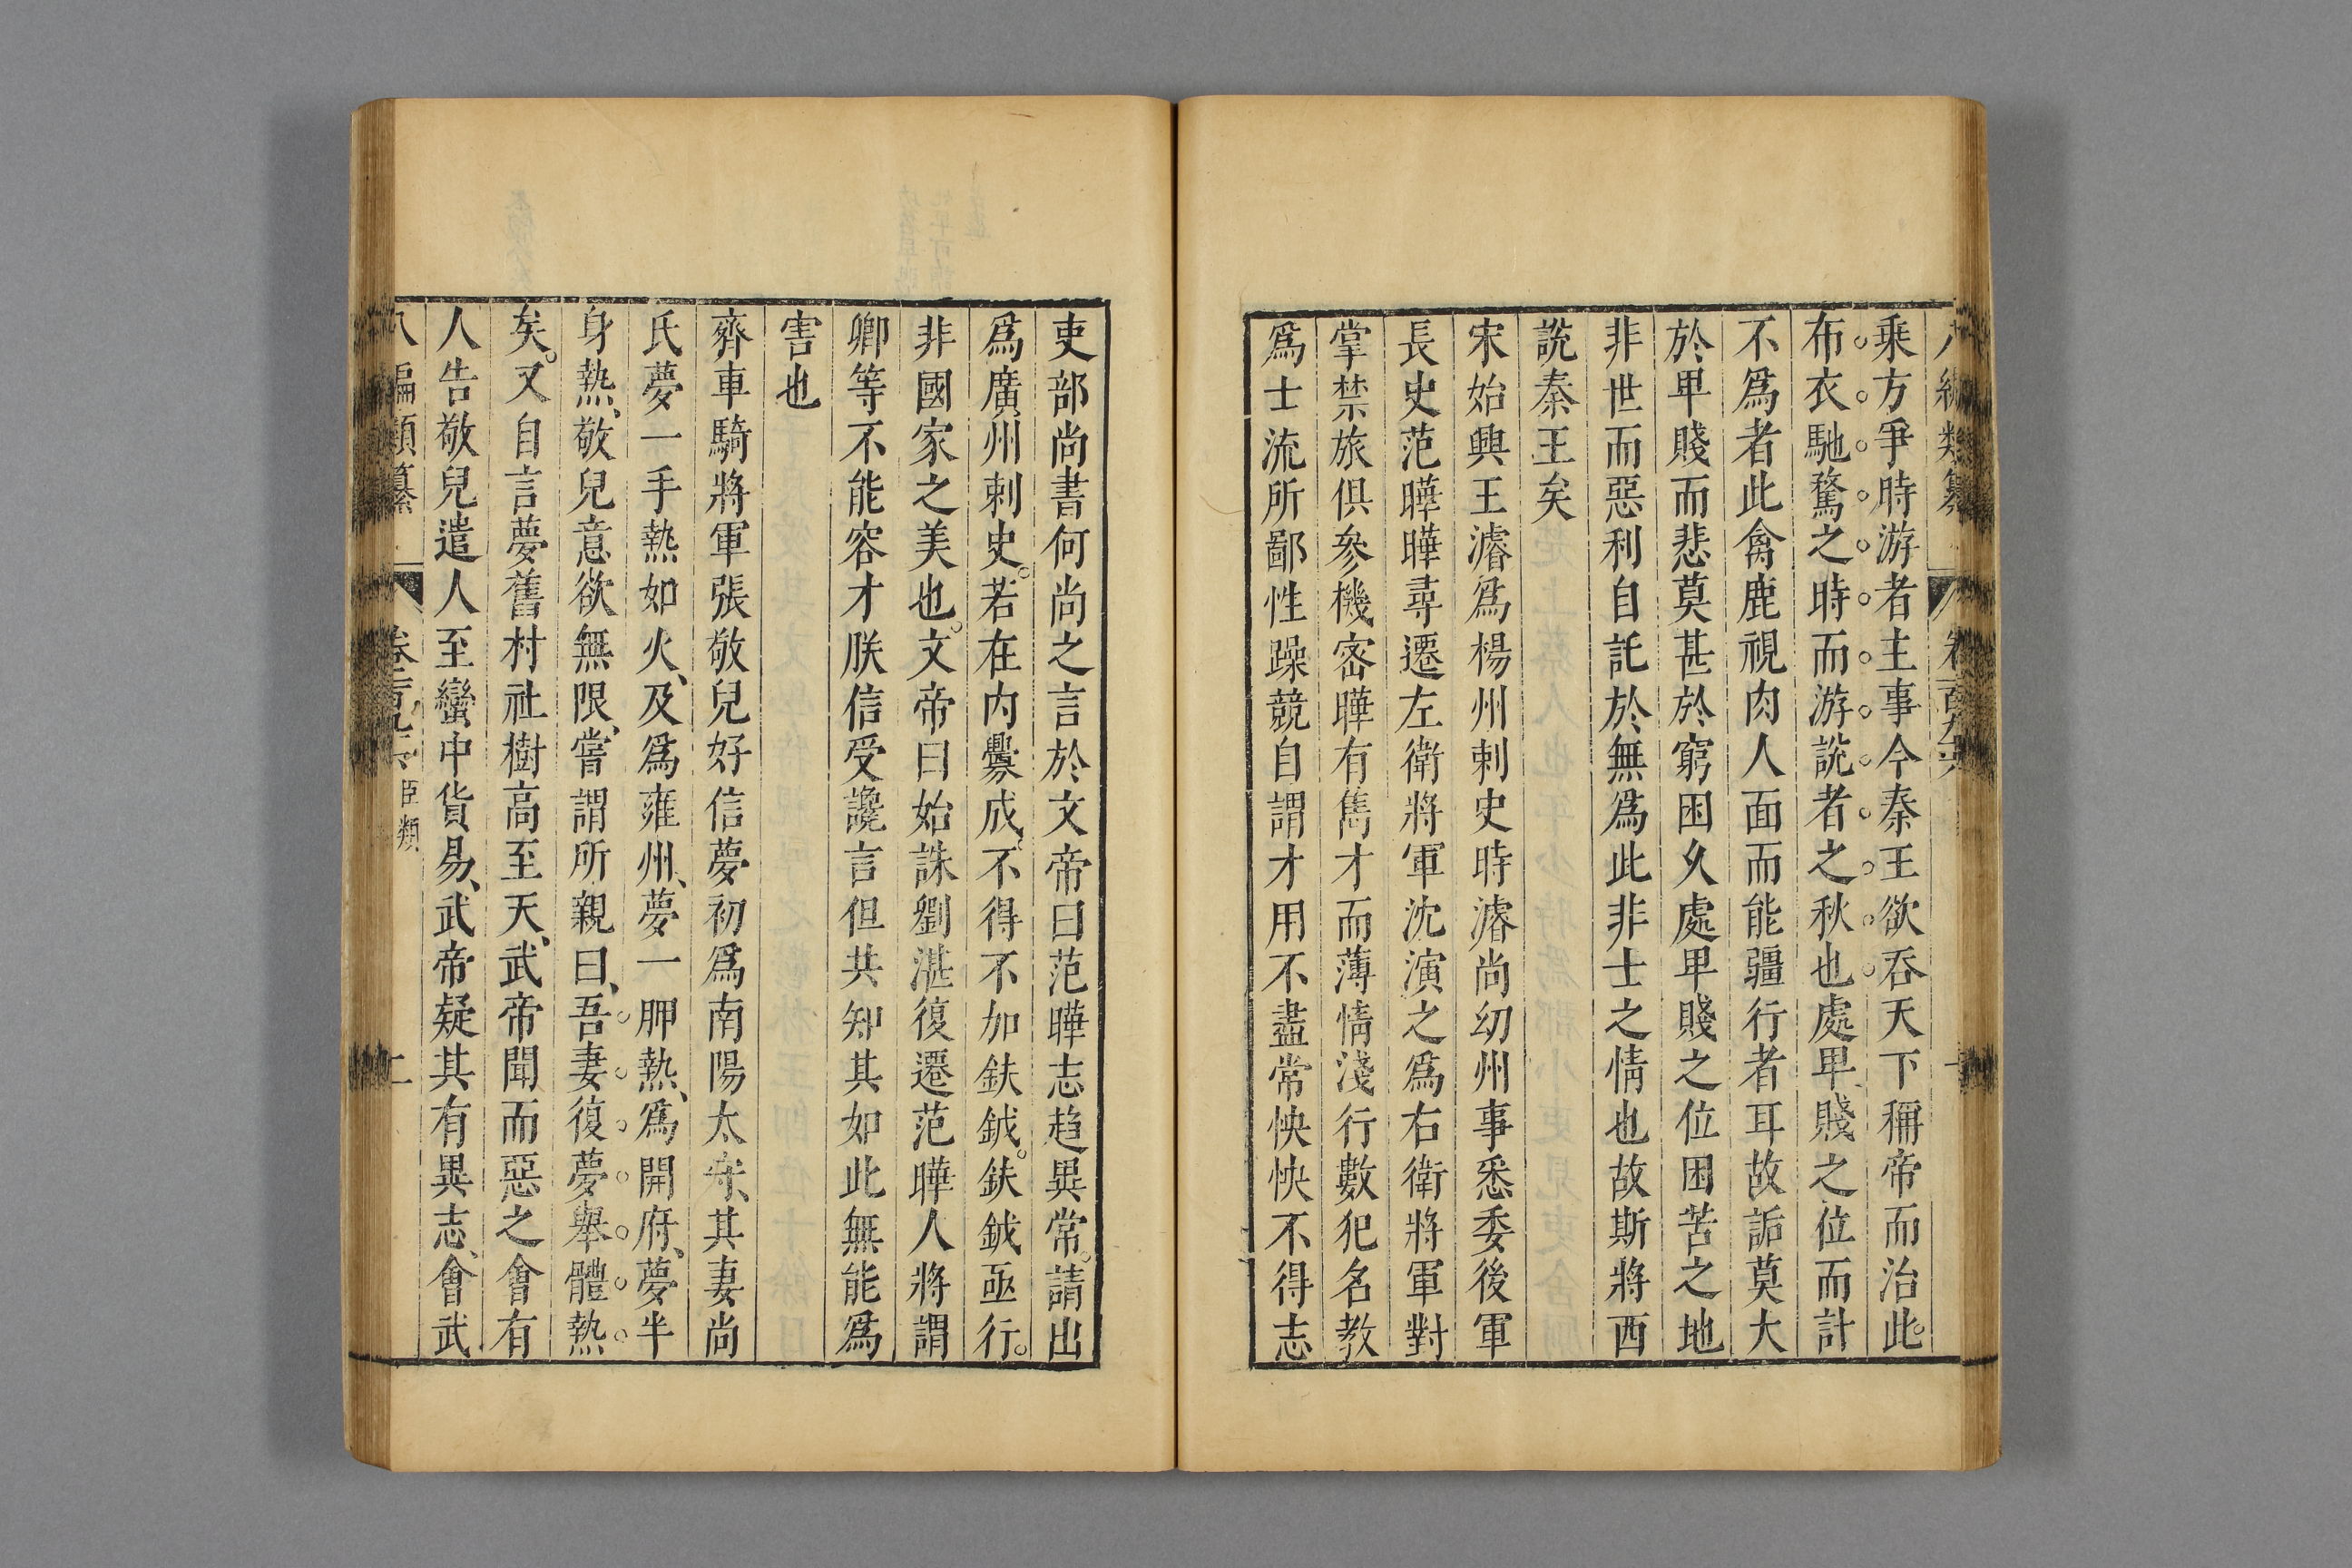 乘方爭時游者主事今秦王欲吞天下稱帝而治此
布衣馳騖之時而游說者之秋也處卑賤之位而計
不爲者此禽鹿視肉人面而能彊行者耳故詬莫大
於卑賤而悲莫甚於窮困久處卑賤之位困苦之地
非世而惡利自託於無爲此非士之情也故斯將西
說秦王矣
宋始興王濬爲楊州刺史時濬尚幼州事悉委後軍
長史范曄曄尋遷左衛將軍沈演之爲右衛將軍對
掌禁旅俱參機密曄有雋才而薄情淺行數犯名教
爲士流所鄙性躁競自謂才用不盡常怏怏不得志
吏部尚書何尚之言於文帝曰范曄志趨異常。請出
爲廣州刺史。若在内釁成、不得不加鈇鉞。鈇鉞亟行。
非國家之美也。文帝曰始誅劉湛復遷范曄人將謂
卿等不能容才朕信受讒言但共知其如此無能爲
害也
齊車騎將軍張敬兒好信夢初爲南陽太守、其妻尚
氏夢一手熱如火、及爲雍州、夢一胛熱、爲開府、夢半
身熱、敬兒意欲無限、嘗謂所親曰、吾妻復夢舉體熱
矣。又自言夢舊村社樹高至天、武帝聞而惡之會有
人告敬兒遣人至蠻中貨易、武帝疑其有異志、會武
八編類纂 卷 臣類 二